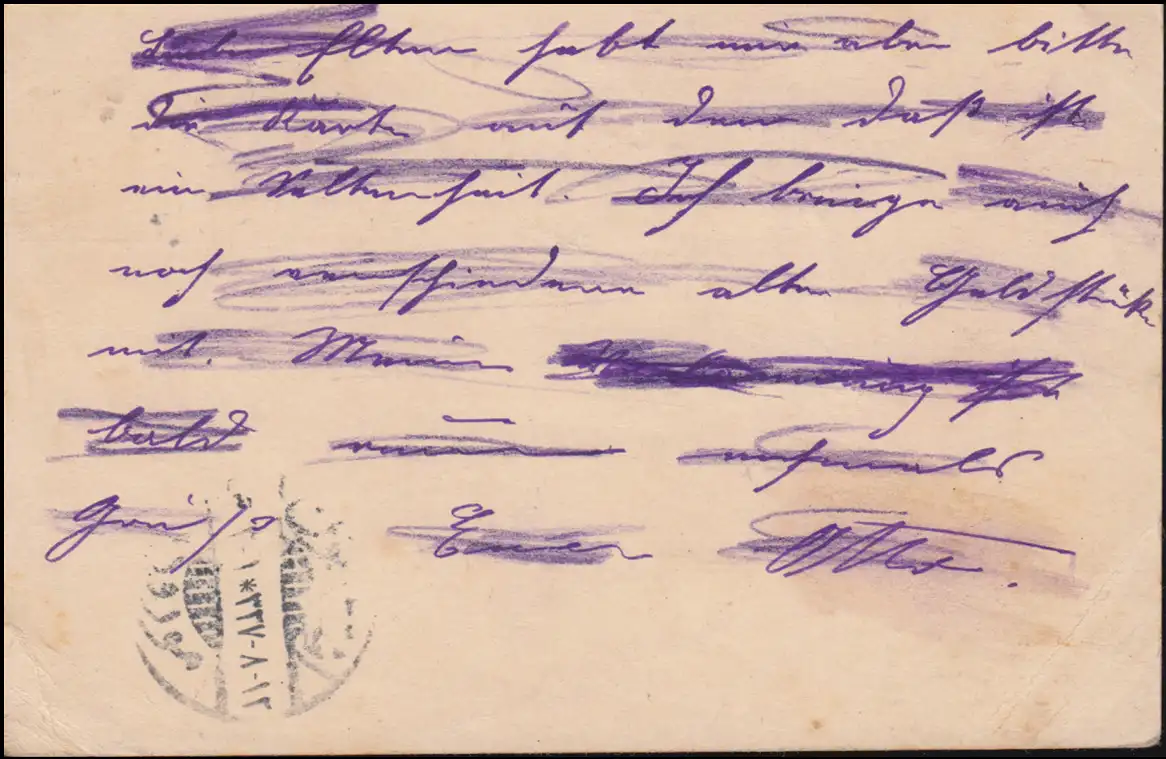 Liebe Eltern habt mir aber bitte
die Karte auf denn daß ist
eine Seltenheit. Ich bringe auch
noch verschiedene alte Geldstücke
mit. Meine ist
bald nochmals
Grüße Euer Otto.